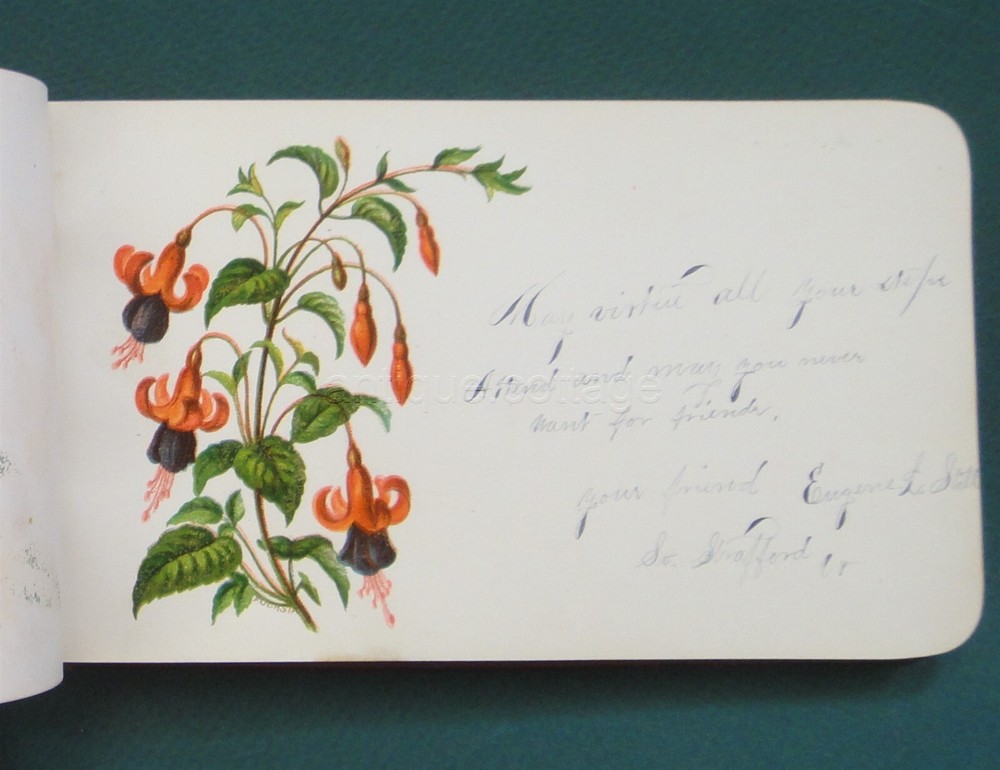 May virtue all your steps
Attend and may you never
want for friends.
your friend Eugene L.
So. Strafford
antique cottage